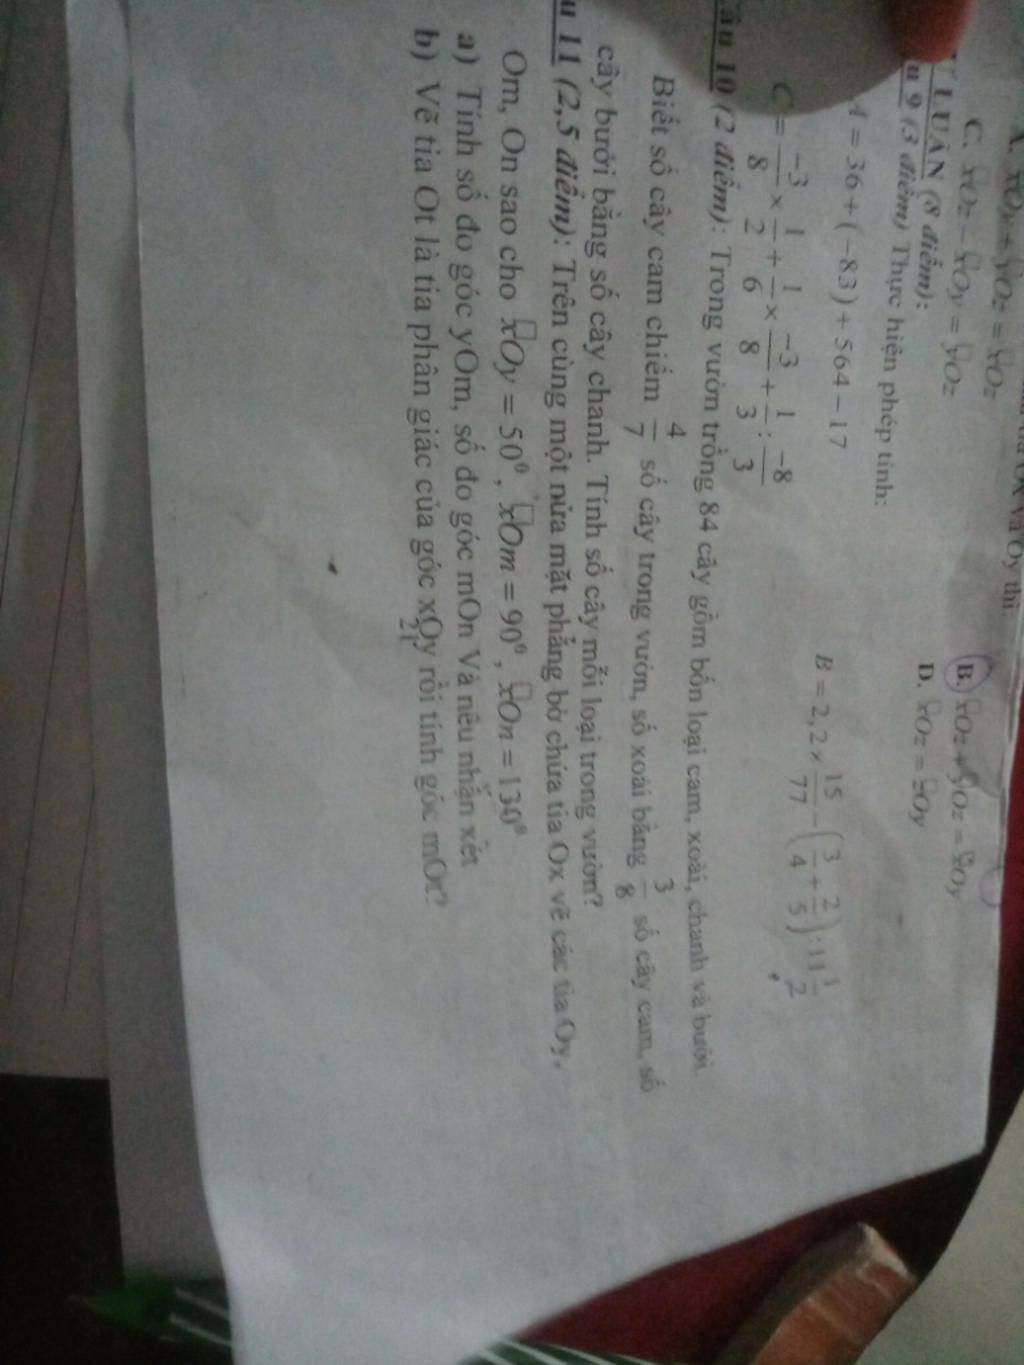 A. xOy + yOz = xOz
B. xOz + yOz = xOy
C. xOz - xOy = yOz
D. xOz = xOy
LUẬN (8 điểm):
u 9 (3 điểm) Thực hiện phép tính:
A = 36 + (-83) + 564 - 17
B = 2,2 × 15/77 - (3/4 + 2/5) : 11 1/2
C = -3/8 × 1/2 + 1/6 × -3/8 + 1/3 : -8/3
âu 10 (2 điểm): Trong vườn trồng 84 cây gồm bốn loại cam, xoài, chanh và bưởi.
Biết số cây cam chiếm 4/7 số cây trong vườn, số xoài bằng 3/8 số cây cam, số
cây bưởi bằng số cây chanh. Tính số cây mỗi loại trong vườn?
u 11 (2,5 điểm): Trên cùng một nửa mặt phẳng bờ chứa tia Ox vẽ các tia Oy,
Om, On sao cho xOy = 50⁰, xOm = 90⁰, xOn = 130⁰
a) Tính số đo góc yOm, số đo góc mOn Và nêu nhận xét
b) Vẽ tia Ot là tia phân giác của góc xOy rồi tính góc mOt?